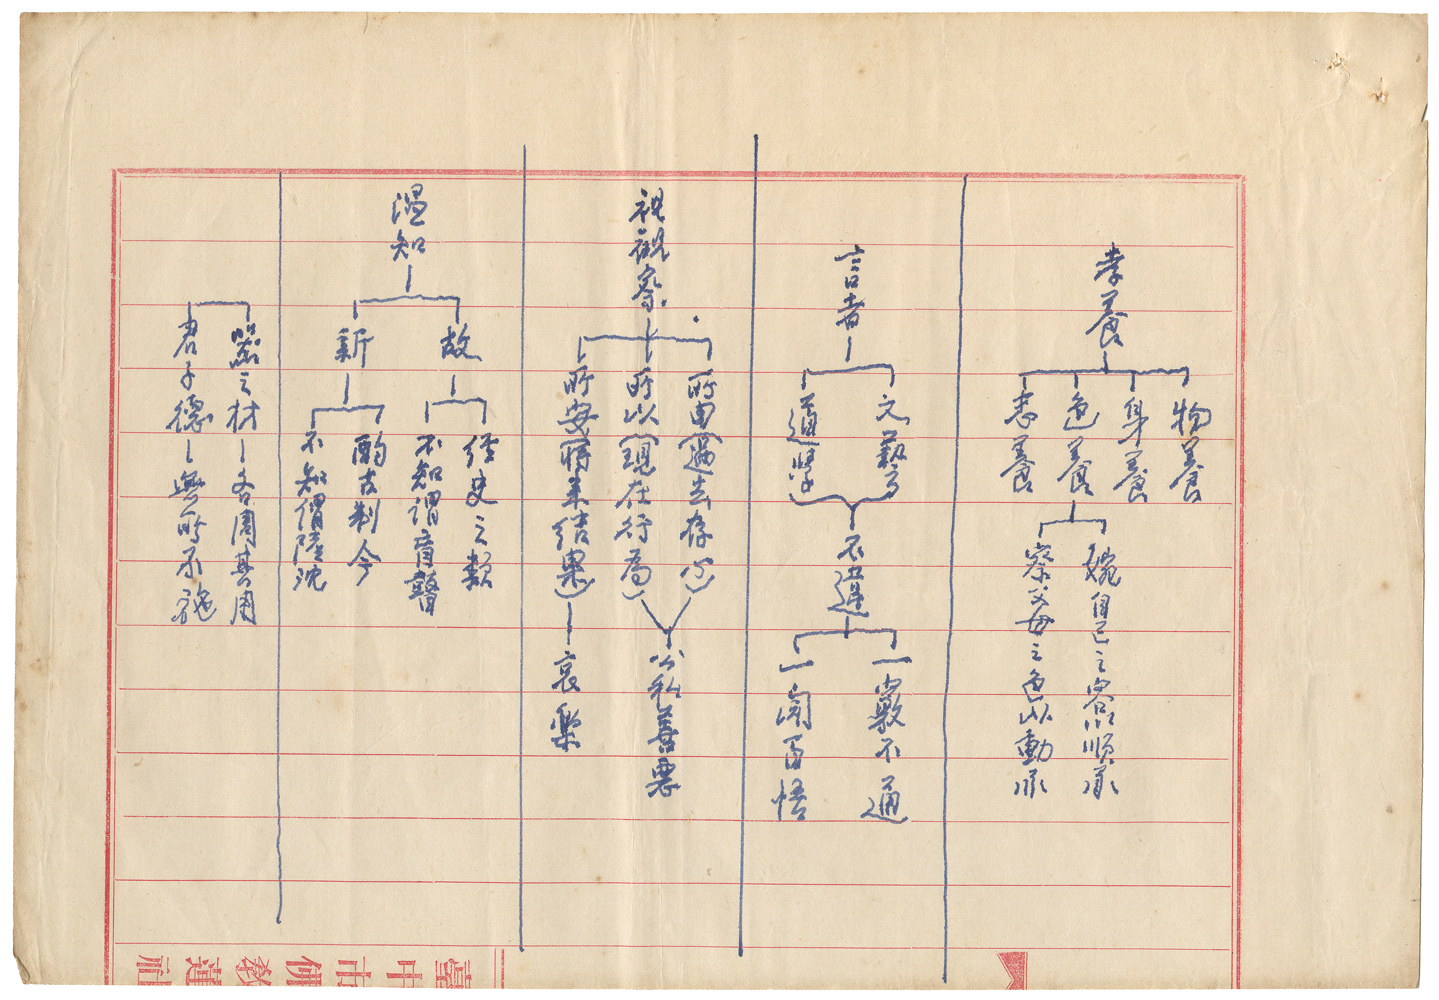 孝養
物養
身養
色養
志養
婉自己之容以順承
察父母之色以動承
言者
文藝
道學
不違
一竅不通
一聞百悟
視觀察
所由(過去存心)
所以(現在行為)
所安(將來結果)
公私善惡
哀樂
溫知
故
新
經史之類
不知謂盲瞽
酌古制今
不知謂陸沈
器之材
各周其用
君子德
無所不施
臺中市佛教蓮社